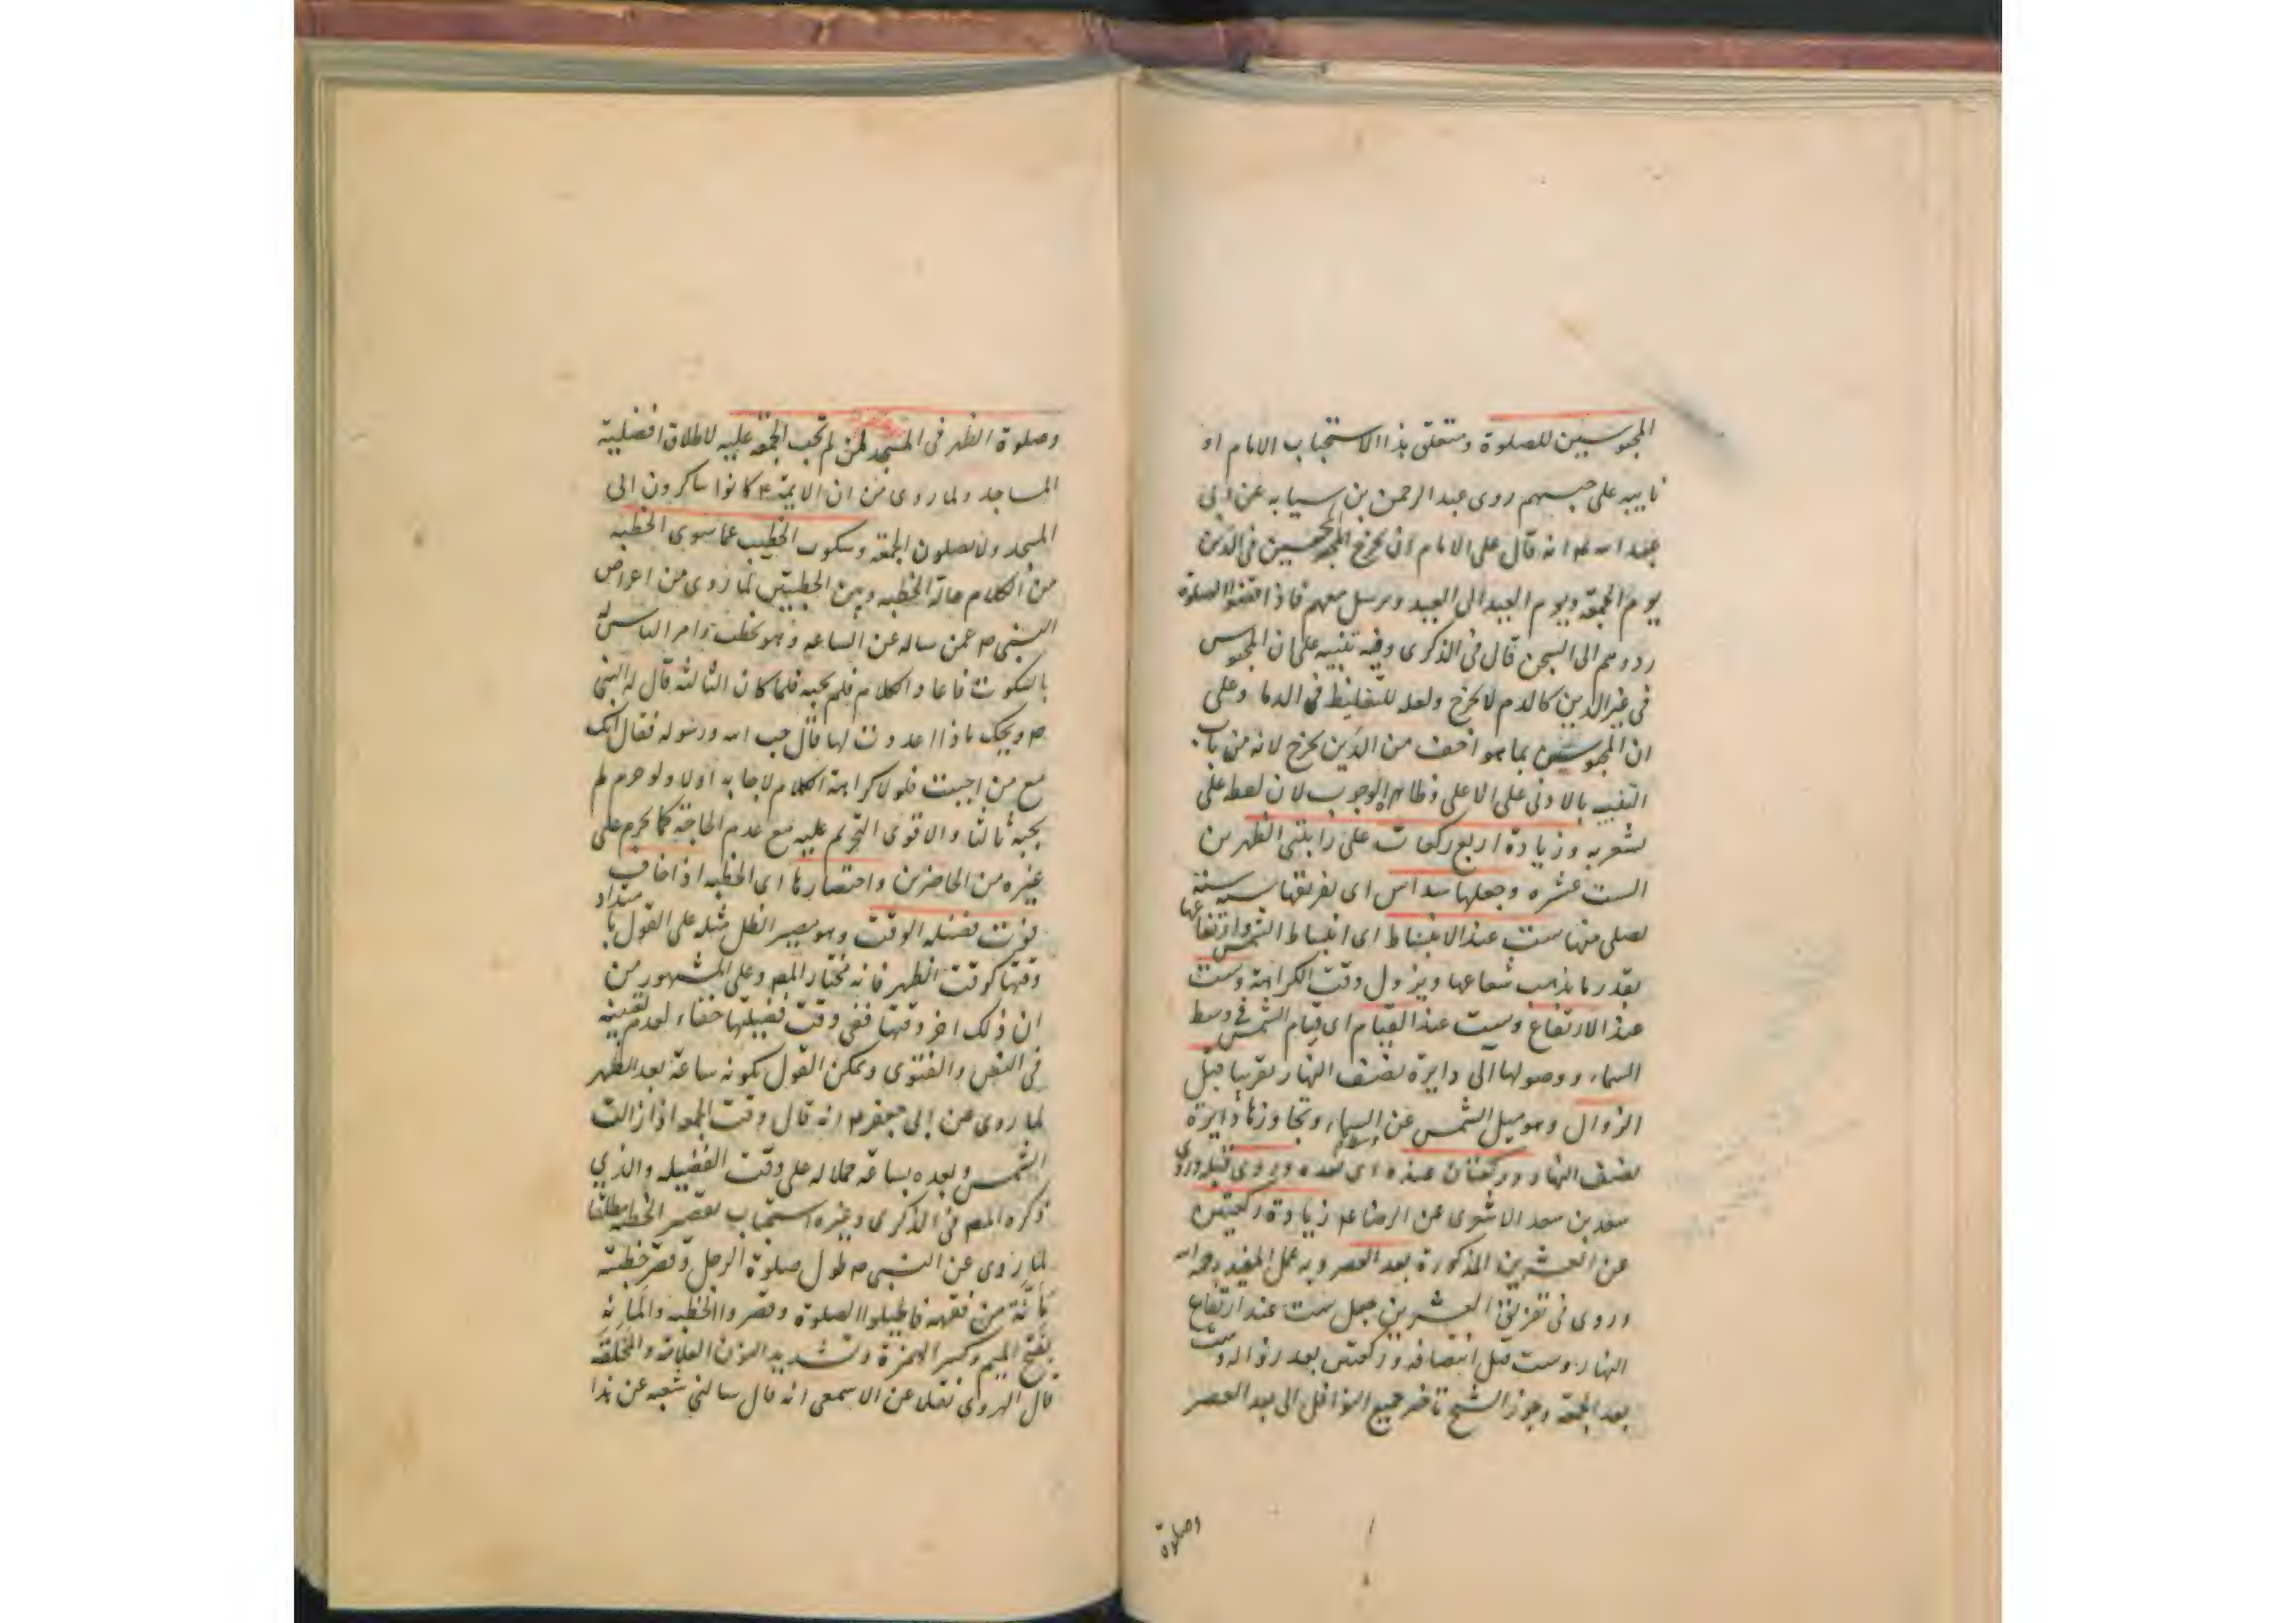 المحبوسين للصلوة ومتعلق هذا الاستحباب الامام او
نايبه على حبسهم روى عبد الرحمن بن سيابه عن ابى
عبد اسه ع انه قال على الامام ان يخرج المحبسين فى الدين
يوم الجمعة ويوم العيد الى العيد ويرسل معهم فاذا قضوا الصلوة
ردوهم الى السجن قال فى الذكرى وفيه تنبيه على ان المحبوس
فى غير الدين كالدم لا يخرج ولعله للتغليظ فى الدما وعلى
ان المحبوسين بما هو اخف من الدين يخرج لانه من باب
التنبيه بالادنى على الاعلى وظاهره الوجوب لان لفظ على
يشعر به وزيادة اربع ركعات على راتبتى الظهرين
الست عشره وجعلها سداس اى تفريقها ستة ستة
يصلى منها ست عند الانبساط اى انبساط الشمس وارتفاعها
بقدر ما يذهب شعاعها ويزول وقت الكراهة وست
عند الارتفاع وست عند القيام اى قيام الشمس فى وسط
السماء ووصولها الى دايرة نصف النهار تقريبا قبل
الزوال وهو ميل الشمس عن وسط السماء وتجاوزها دايرة
نصف النهار وركعتان عنده اى بعده ويروى قبله وروى
سعد بن سعد الاشعرى عن الرضا ع زيادة ركعتين
عن العشرين المذكورة بعد العصر وبه عمل المفيد رحمه اسه
وروى فى تفريق العشرين جعل ست عند ارتفاع
النهار وست قبل انتصافه وركعتين بعد زواله وست
بعد الجمعة وجوز الشيخ تاخير جميع النوافل الى بعد العصر
وصلوة
وصلوة الظهر فى المسجد لمن لم تجب الجمعة عليه لاطلاق افضلية
المساجد ولما روى من ان الايمة ع كانوا يباكرون الى
المسجد ولا يصلون الجمعة وسكوت الخطيب عما سوى الخطبه
من الكلام حالة الخطبه وبين الخطبتين لما روى من اعراض
النبى ص عمن ساله عن الساعه وهو يخطب وامر الناس له
بالسكوت فاعاد الكلام فلم يجبه فلما كان الثالثة قال له النبى
ص ويحك ماذا اعددت لها قال حب اسه ورسوله فقال انك
مع من احببت فلولا كراهة الكلام لاجابه اولا ولو حرم لم
يجبه ثالثا والاقوى التحريم عليه مع عدم الحاجة كما يحرم على
غيره من الحاضرين واختصارها اى الخطبه اذا خاف
فوت فضيلة الوقت وهو مصير الظل مثله على القول بامتداد
وقتها كوقت الظهر فانه مختار المصـ وعلى المشهور من
ان ذلك اخر وقتها ففى وقت فضيلتها خفاء لعدم تعيينه
فى النص والفتوى ويمكن القول بكونه ساعة بعد الظهر
لما روى عن ابى جعفر ع انه قال وقت الجمعه اذا زالت
الشمس وبعده بساعة حملا له على وقت الفضيله والذى
ذكره المصـ فى الذكرى وغيره استحباب تقصير الخطبه مطلقا
لما روى عن النبى ص طول صلوة الرجل وقصر خطبته
مأنّة من فقهه فاطيلوا الصلوة وقصروا الخطبه والمأنه
بفتح الميم وكسر الهمزة وتشديد النون العلامة والمخلقه
قال الهروى نقلا عن الاصمعى انه قال سالنى شعبه عن هذا